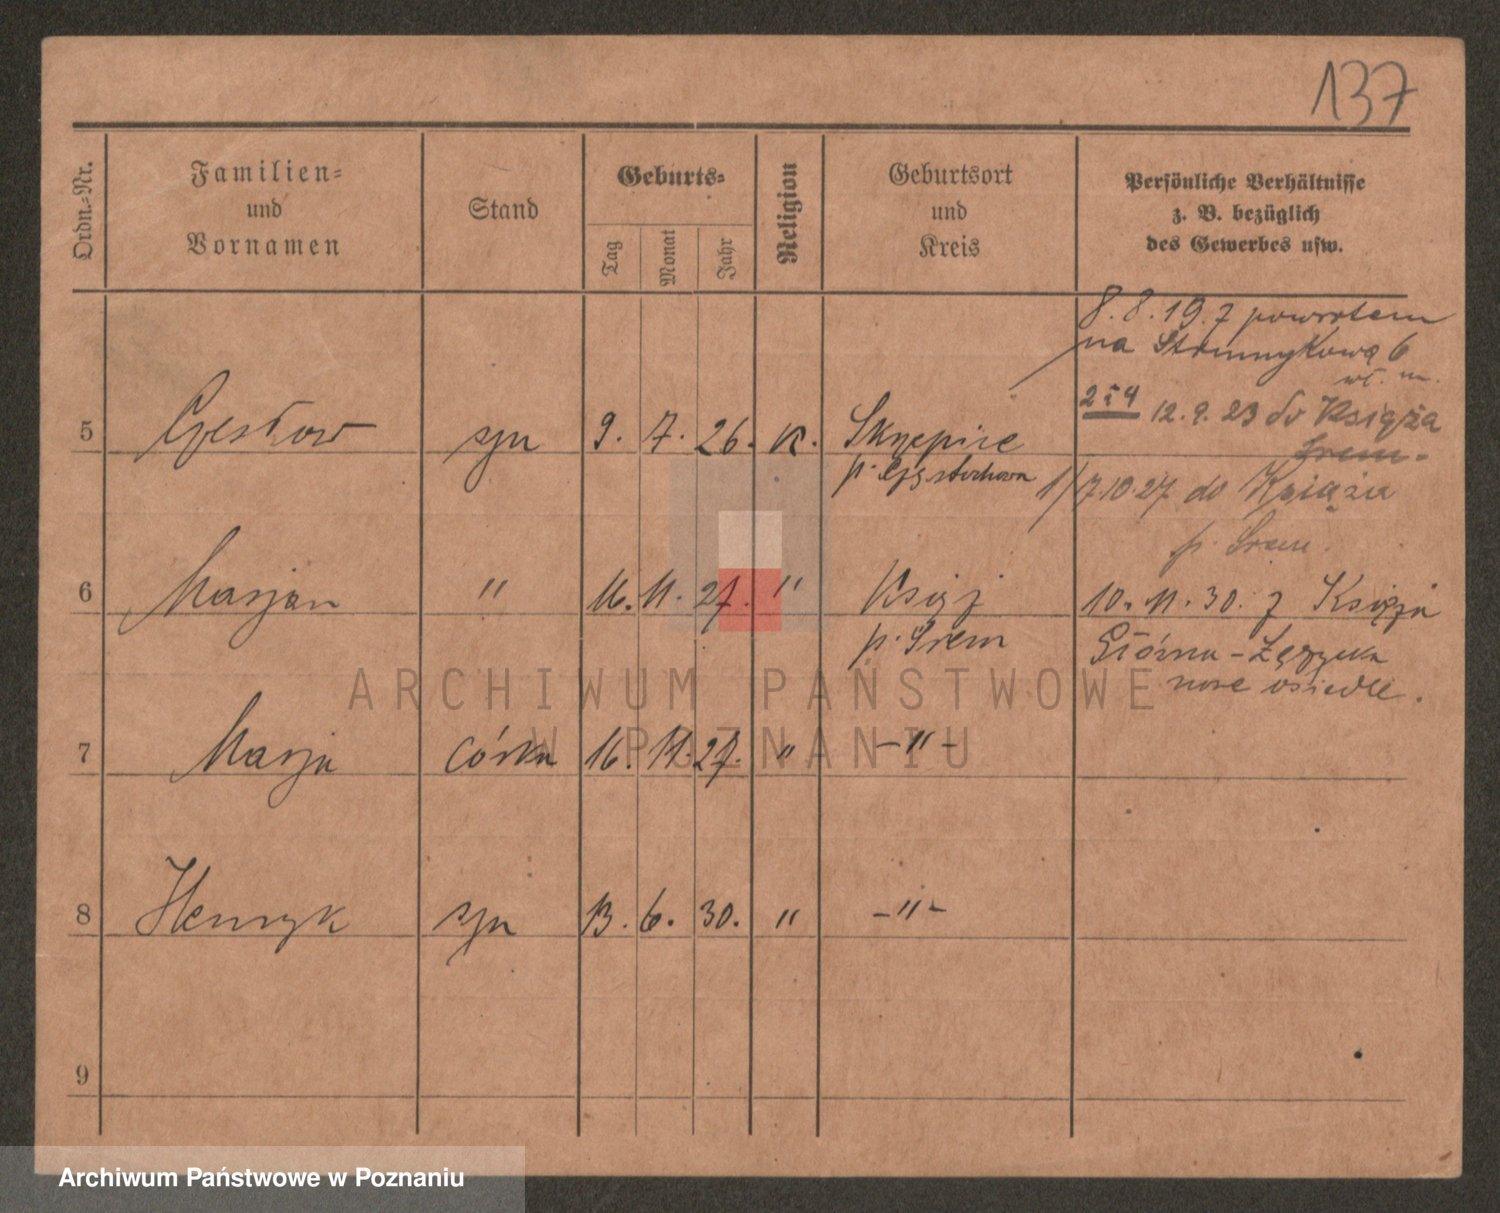 137
Ordn.-Nr.
Familien-
und
Vornamen
Stand
Geburts-
Tag
Monat
Jahr
Religion
Geburtsort
und
Kreis
Persönliche Verhältnisse
z. B. bezüglich
des Gewerbes usw.
8. 8. 19. z powrotem
na Strumykową 6
wł. m.
2 i 4 12. 9. 23 do Książa
Śrem.
5 Czesław syn 9. 7. 26. K. Skrzepice
p. Częstochowa
1/ 7.10.27 do Książa
p. Śrem.
6 Marjan " 16. 11. 27. " Książ
p. Śrem
10. 11. 30. z Książa
Główna - Łączka
nowe osiedle.
7 Marja córka 16. 11. 27. " - " -
8 Henryk syn 13. 6. 30. " - " -
9
ARCHIWUM PAŃSTWOWE
W POZNANIU
Archiwum Państwowe w Poznaniu